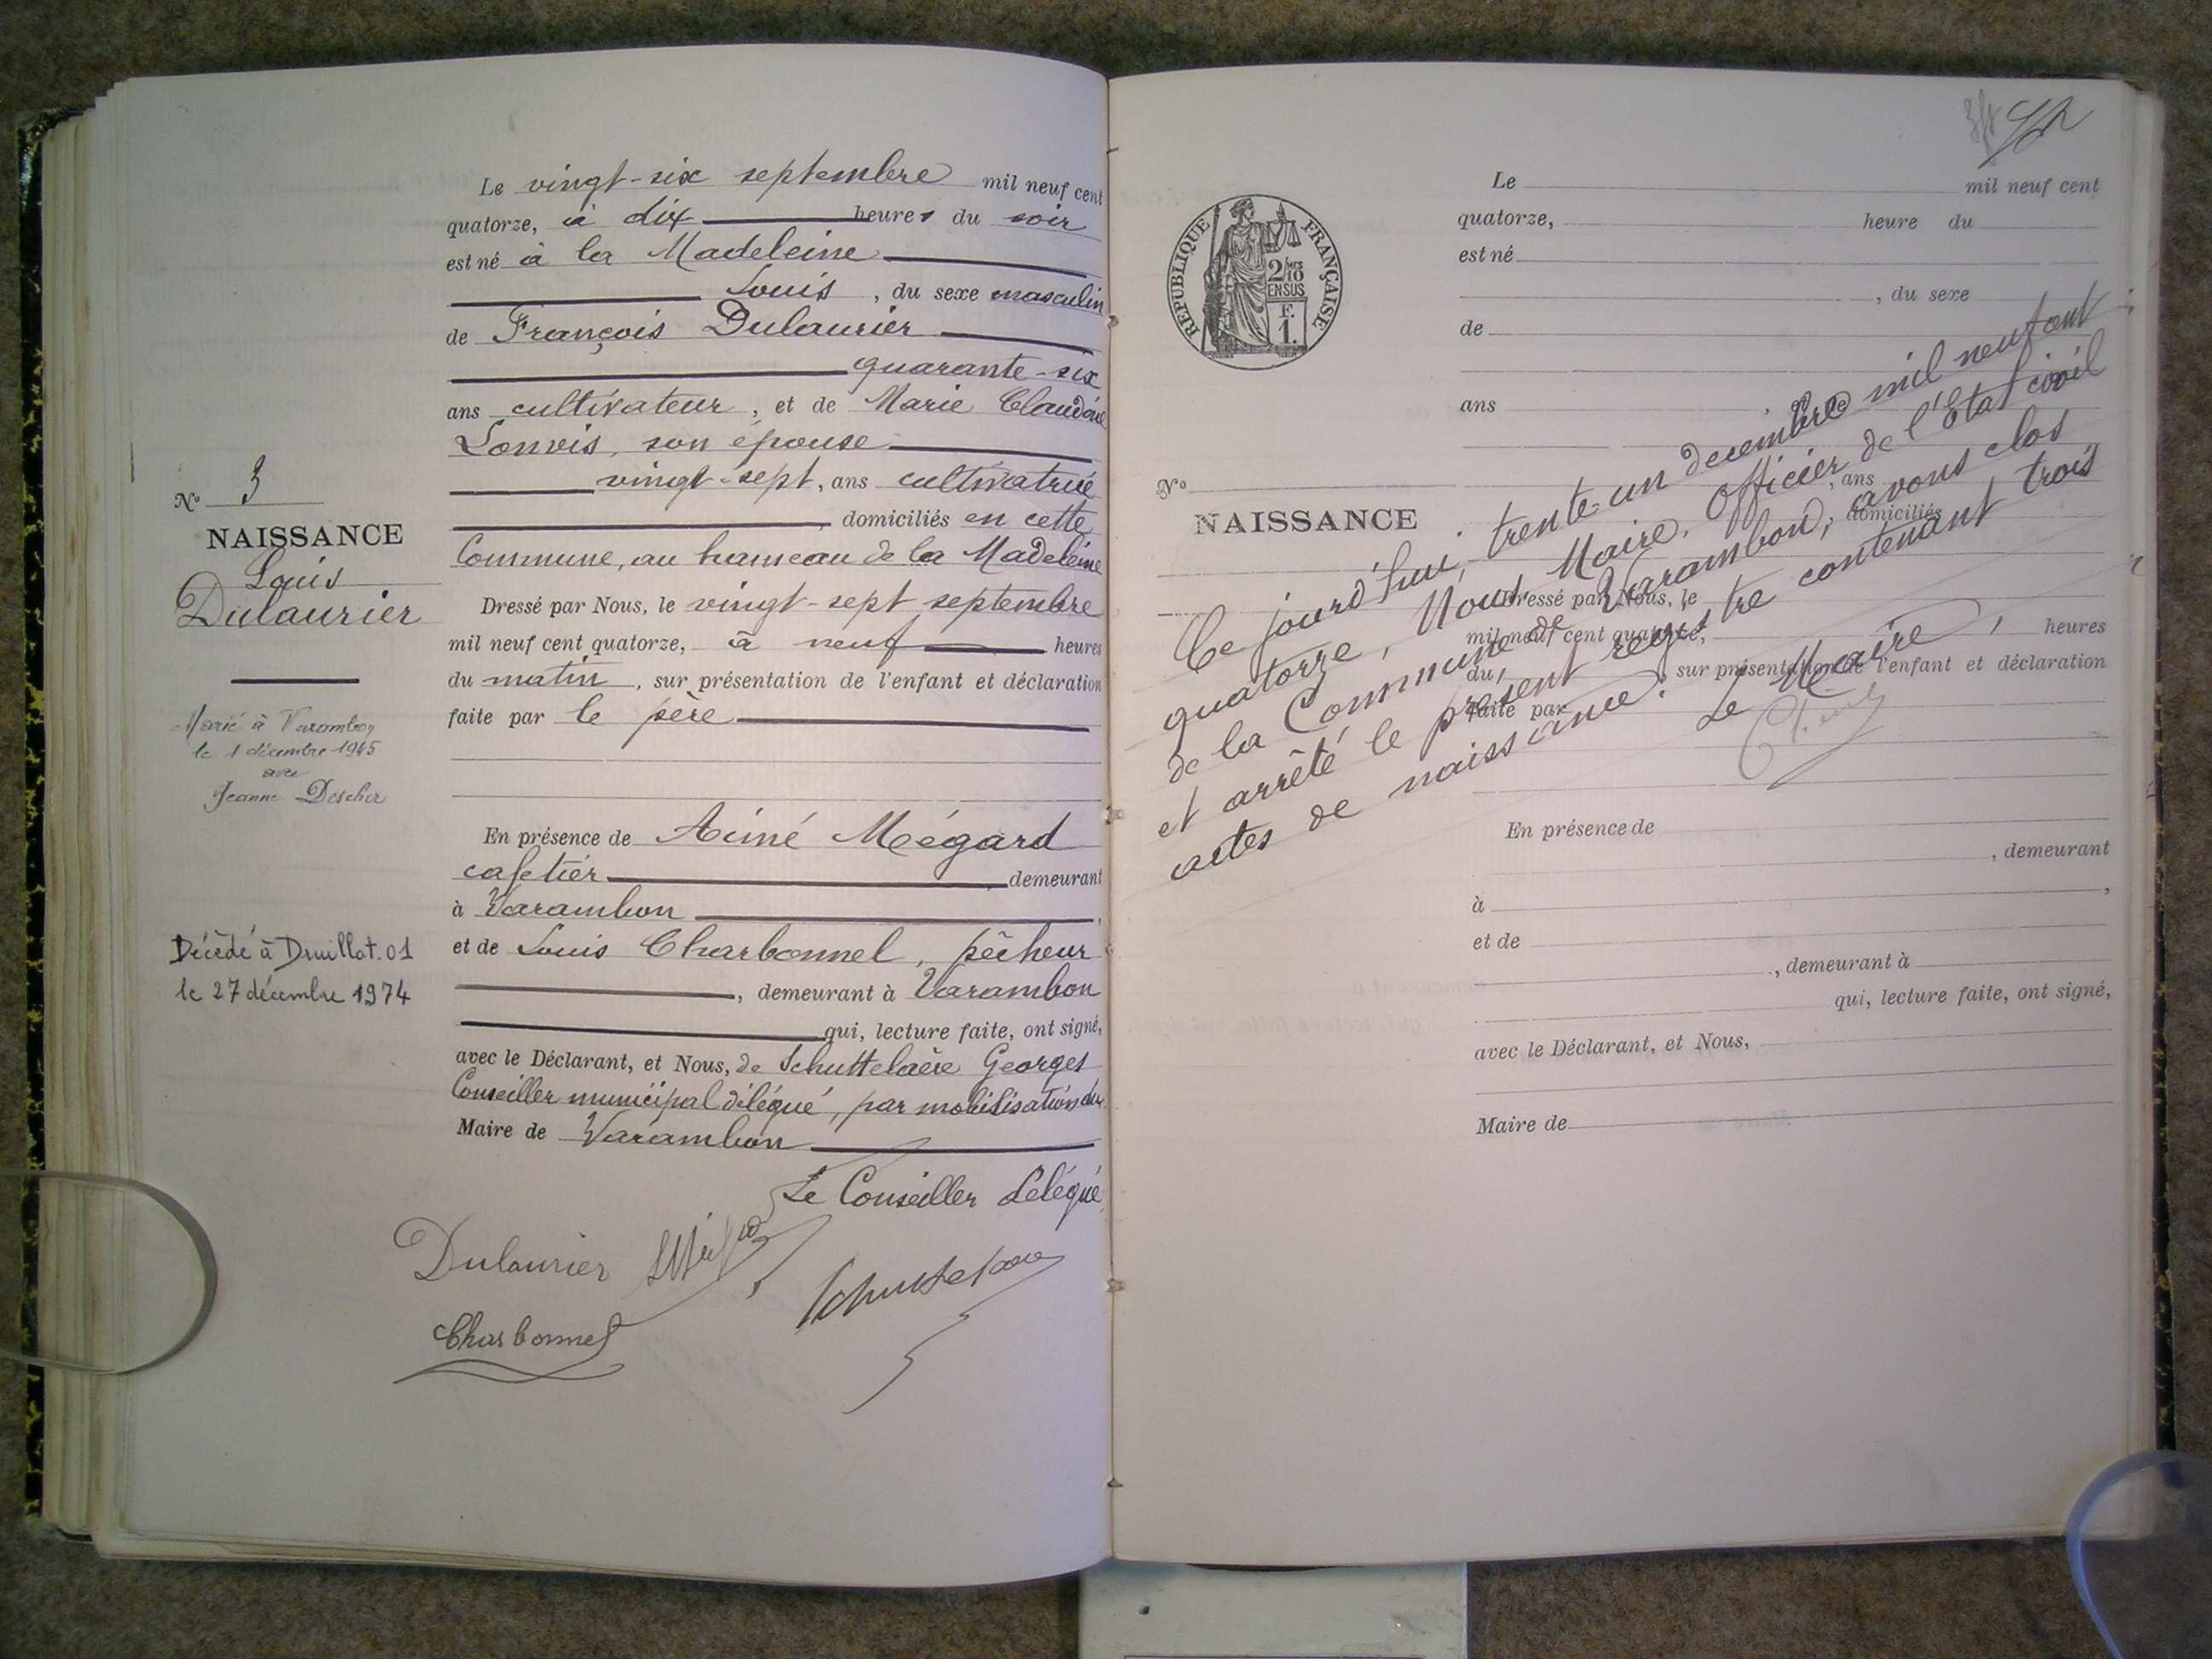 Le vingt-six septembre mil neuf cent
quatorze, à dix heures du soir
est né à la Madeleine
Louis, du sexe masculin
de François Dulaurier
quarante-six
ans cultivateur, et de Marie Claudine
son épouse
vingt-sept, ans cultivatrice
, domiciliés en cette
Commune, au hameau de la Madeleine
N° 3
NAISSANCE
Louis
Dulaurier
Dressé par Nous, le vingt-sept septembre
mil neuf cent quatorze, à neuf heures
du matin, sur présentation de l'enfant et déclaration
faite par le père
Marié à Varambon
le 1 décembre 1945
avec
Jeanne
En présence de Aimé Mégard
cafetier demeurant
à Varambon,
et de Louis Charbonnel, pêcheur
, demeurant à Varambon
qui, lecture faite, ont signé,
avec le Déclarant, et Nous, de Schuttelaère Georges
Conseiller municipal délégué, par mobilisation du
Maire de Varambon
Décédé à Druillat.01
le 27 décembre 1974
Le Conseiller Délégué
Dulaurier
Charbonnel
RÉPUBLIQUE FRANÇAISE
2/10
EN SUS
F.
1.
Le mil neuf cent
quatorze, heure du
est né
, du sexe
de
ans
, ans
, domiciliés
N°
NAISSANCE
Dressé par Nous, le
mil neuf cent quatorze, heures
du, sur présentation de l'enfant et déclaration
faite par
Ce jourd'hui, trente-un décembre mil neuf cent
quatorze, Nous Maire, Officier de l'Etat civil
de la Commune de Varambon, avons clos
et arrêté le présent registre contenant trois
actes de naissance. Le Maire,
En présence de
, demeurant
à,
et de
, demeurant à
qui, lecture faite, ont signé,
avec le Déclarant, et Nous,
Maire de